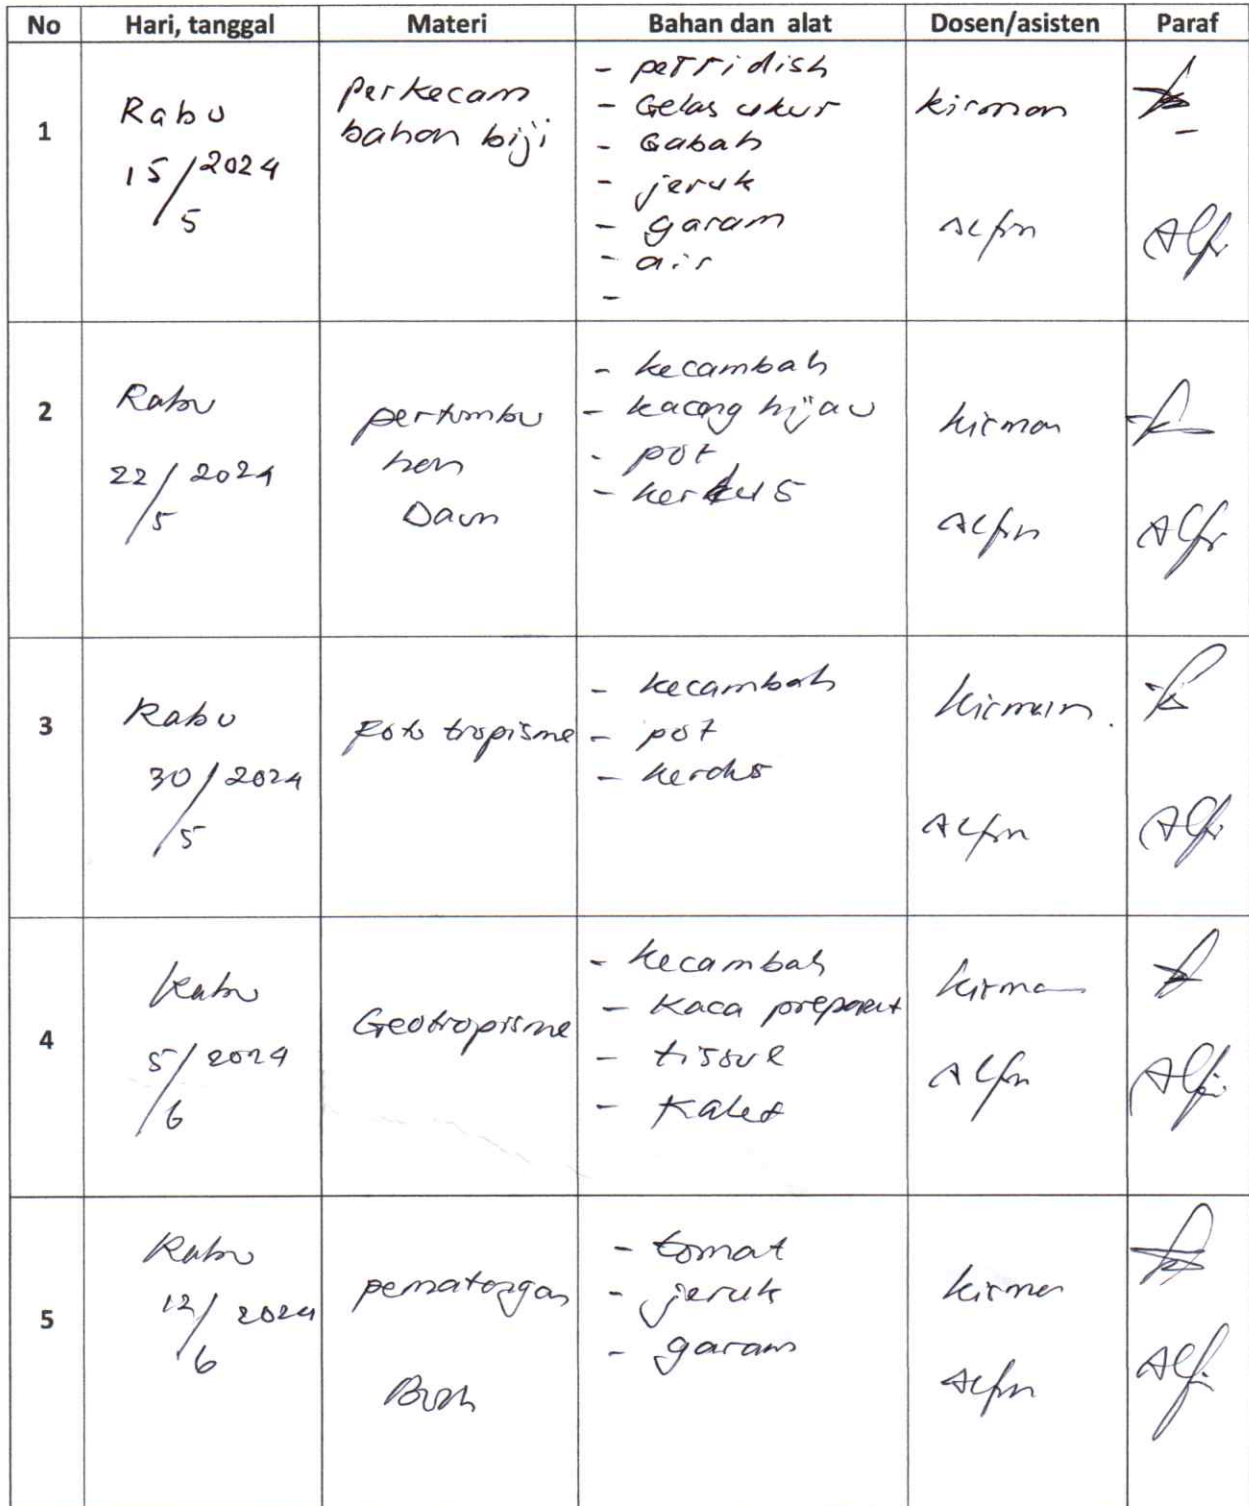 No Hari, tanggal Materi Bahan dan alat Dosen/asisten Paraf
1
Rabu
15/2024
/5
perkecam
bahan biji
- petridish
- Gelas ukur
- Gabah
- jeruk
- garam
- air
-
kirman
Alfin
2
Rabu
22/2024
/5
pertumbu
han
Daun
- kecambah
- kacang hijau
- pot
- kerdus
kirman
Alfin
3
Rabu
30/2024
/5
Foto tropisme
- kecambah
- pot
- kerdus
kirman.
Alfin
4
Rabu
5/2024
/6
Geotropisme
- kecambah
- Kaca preparat
- tissue
- Karet
kirman
Alfin
5
Rabu
12/2024
/6
pematangan
Buah
- tomat
- jeruk
- garam
kirman
Alfin